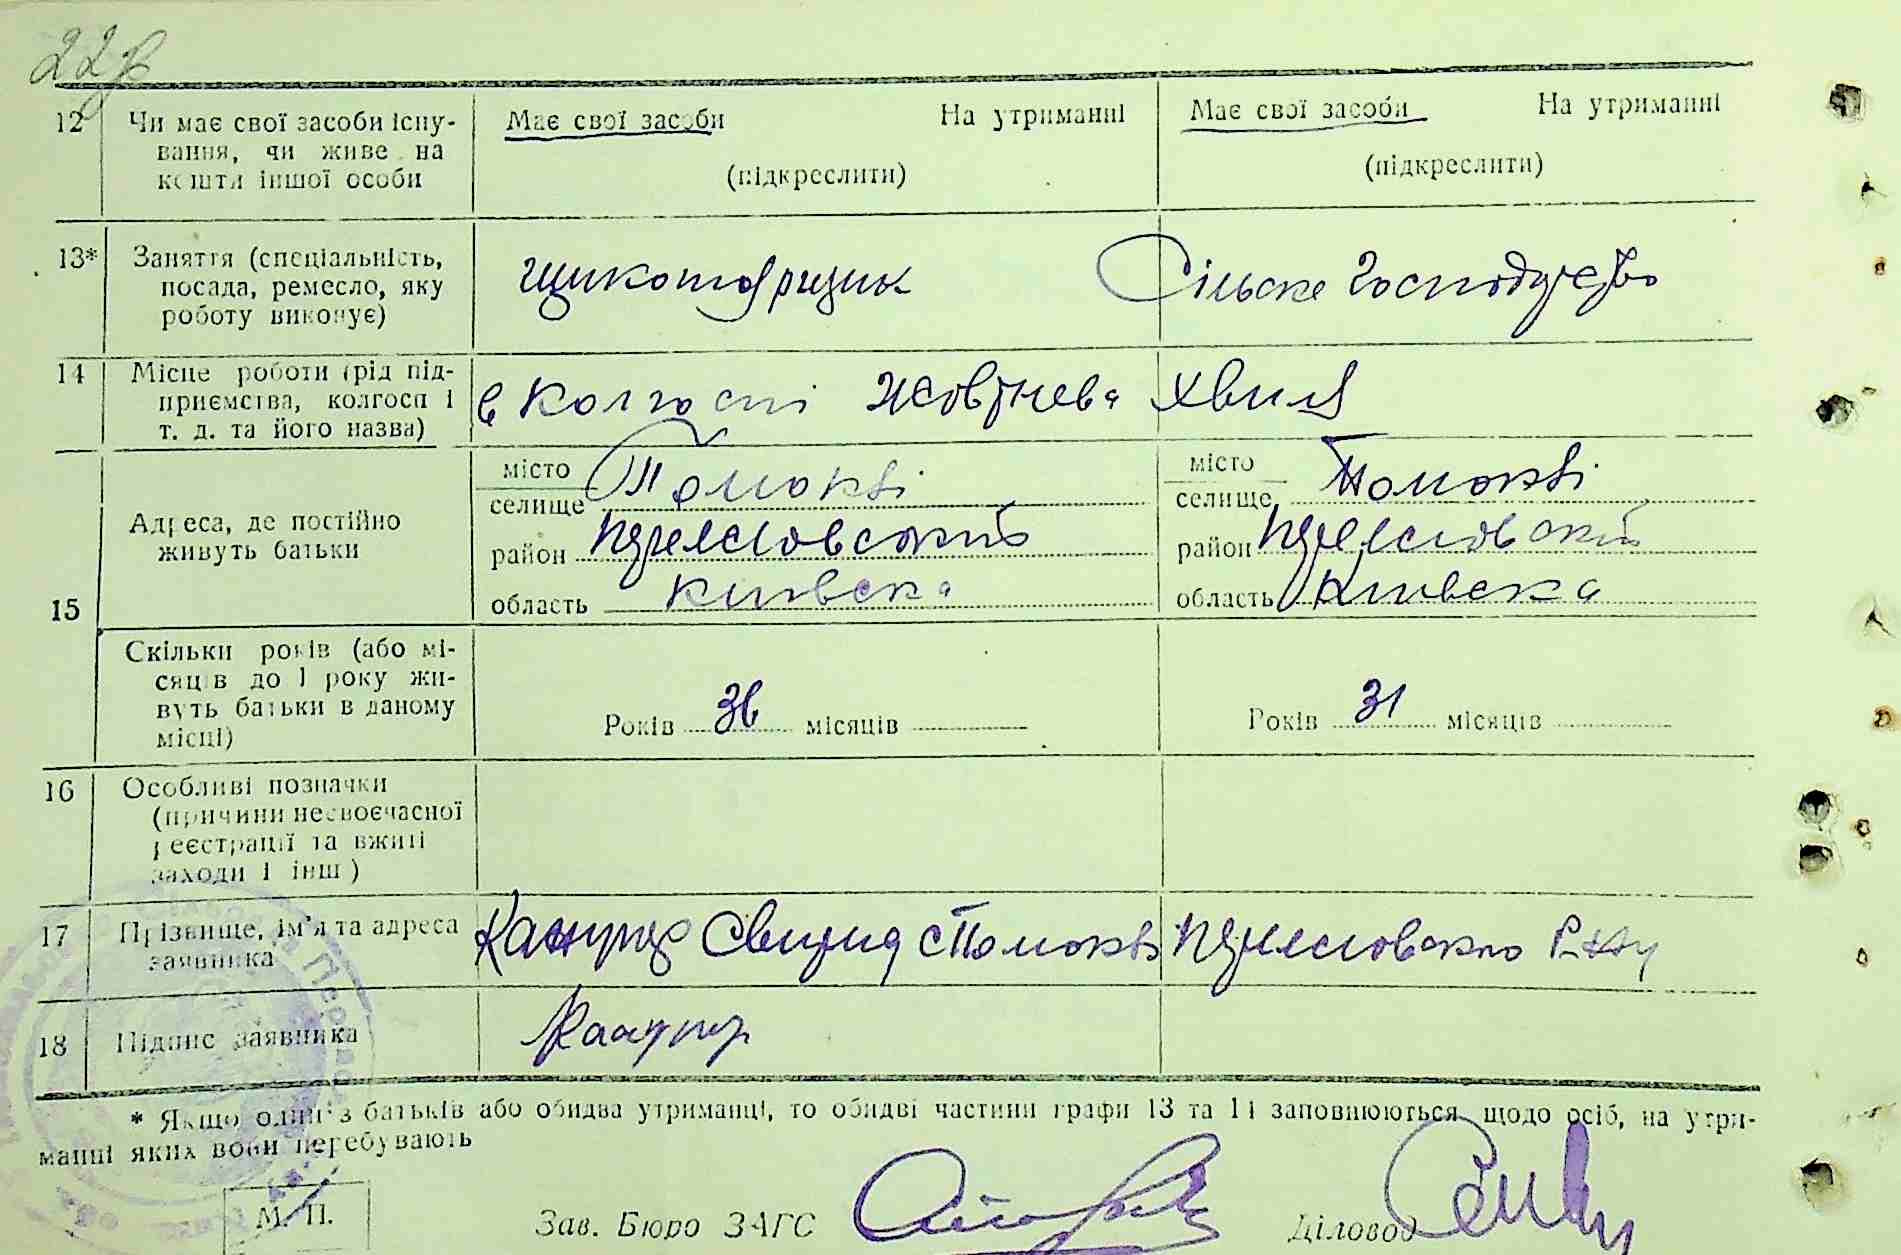 22
12 Чи має свої засоби існу-
вання, чи живе на
кошти іншої особи
Має свої засоби На утриманні
(підкреслити)
Має свої засоби На утриманні
(підкреслити)
13* Заняття (спеціальність,
посада, ремесло, яку
роботу виконує)
Сільске Господарство
14 Місце роботи (рід під-
приємства, колгосп і
т. д. та його назва)
в Колгоспі Жовтнева Хвиля
15 Адреса, де постійно
живуть батьки
місто
селище Помоклі
район
область Київска
місто
селище Помоклі
район
область Київска
Скільки років (або мі-
сяців до 1 року жи-
вуть батьки в даному
місці)
Років 36 місяців
Років 31 місяців
16 Особливі позначки
(причини несвоєчасної
реєстрації та вжиті
заходи і інш)
17 Прізвище, ім'я та адреса
заявника
Свирид с Помоклі
18 Підпис заявника
* Якщо один з батьків або обидва утриманці, то обидві частини графи 13 та 14 заповнюються щодо осіб, на утри-
манні яких вони перебувають
М. П.
Зав. Бюро ЗАГС
Діловод